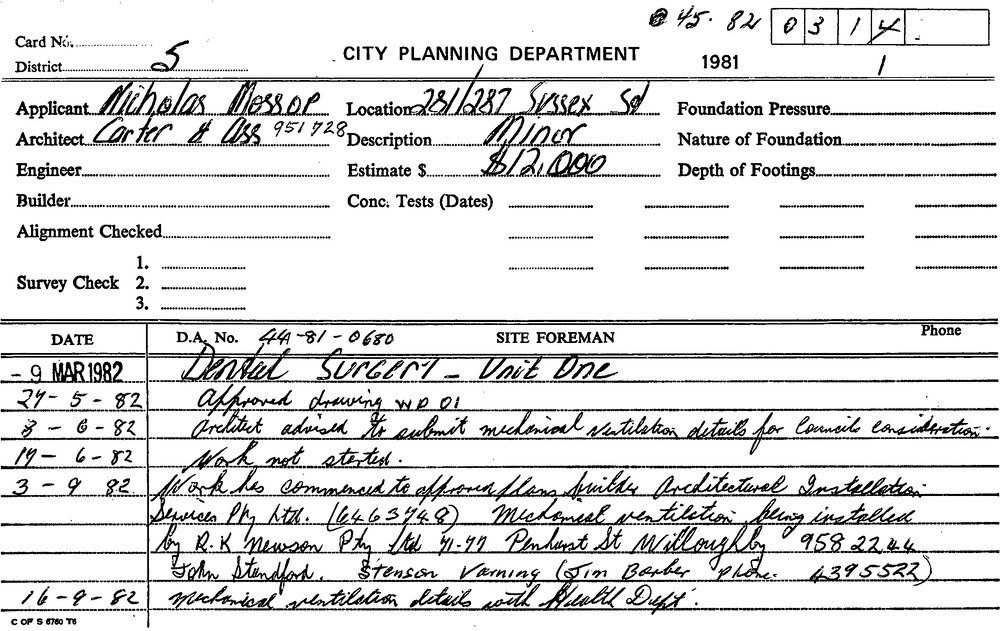 45. 82 0314
Card No.
District 5
CITY PLANNING DEPARTMENT 1981 1
Applicant Nicholas Mossop Location 281/287 Sussex St Foundation Pressure
Architect Carter & Ass 951728 Description Minor Nature of Foundation
Engineer Estimate $ $12,000 Depth of Footings
Builder Conc. Tests (Dates)
Alignment Checked
1.
Survey Check 2.
3.
DATE D.A. No. 44-81-0680 SITE FOREMAN Phone
- 9 MAR 1982 Dental SURGERY - Unit One
27- 5 - 82 Approved drawing WD 01
3 - 6 - 82 Architect advised to submit mechanical ventilation details for Councils consideration.
17 - 6 - 82 Work not started.
3 - 9 82 Work has commenced to approved plans builder Architectural Installation
Services Pty Ltd. (6463748) Mechanical ventilation being installed
by R.K Newson Pty Ltd 71-77 Penhurst St Willoughby 958 2244
John Standford. Stenson Varning (Jim Barber phone. 4395522)
16-9-82 mechanical ventilation details with Health Dept.
C OF S 6760 T6